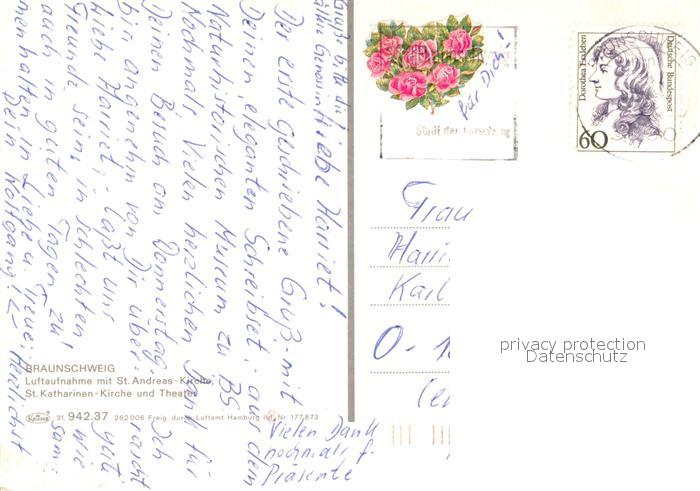 Liebe Harriet!
Der erste geschriebene Gruß mit
Deinen eleganten Schreibset, aus dem
Naturhistorischen Museum zu BS.
Nochmals Vielen herzlichen Dank für
Deinen Besuch am Donnerstag. Ich
bin angenehm von Dir überrascht
liebe Harriet, laßt uns gute
Freunde sein, in schlechten wie
auch in guten Tagen zu
menhalten in Liebe u. Treue.
Dein Wolfgang! Herzlichst
Grüße bitte die
BRAUNSCHWEIG
Luftaufnahme mit St. Andreas-Kirche,
St. Katharinen-Kirche und Theater
31. 942.37 262 006 Freig. durch Luftamt Hamburg Nr. 177873
Vielen Dank
nochmals f.
Präsente
für Dich!
Stadt der Forschung
Dorothea Erxleben
Deutsche Bundespost
60
Frau
Harri
Karl
O-1
privacy protection
Datenschutz